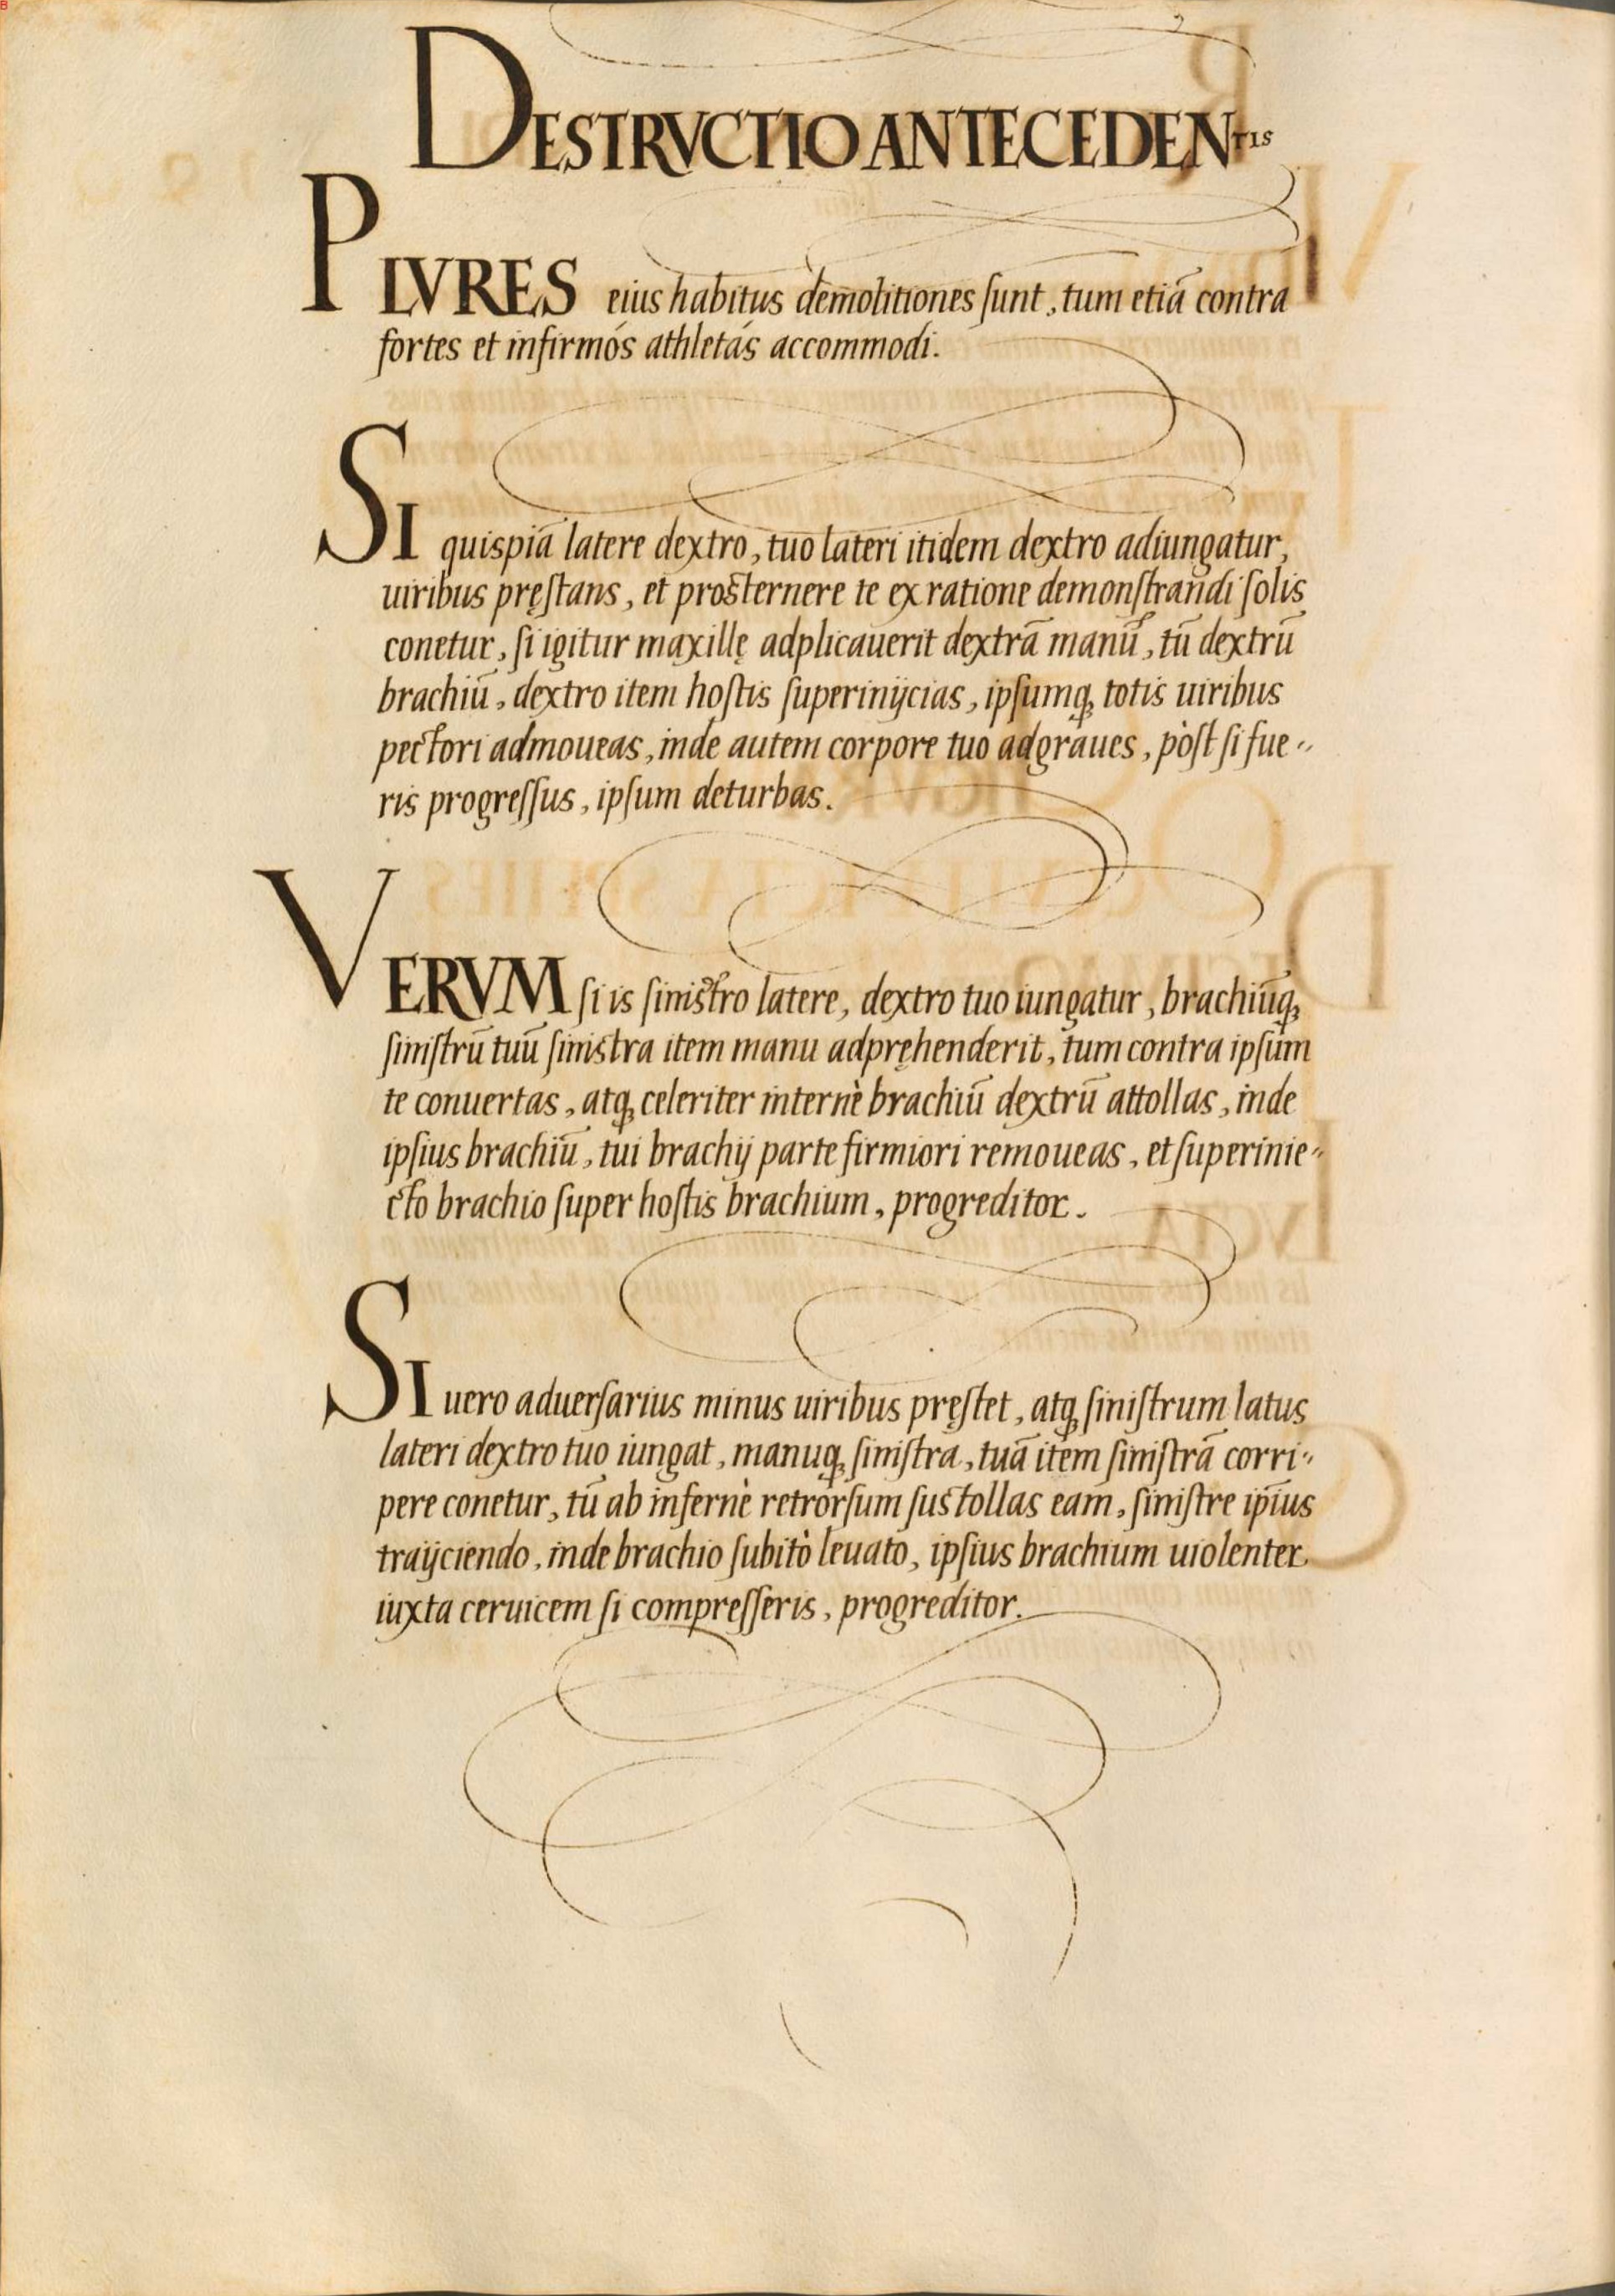 DESTRVCTIO ANTECEDENTIS
PLVRES eius habitus demolitiones ſunt, tum etiã contra
fortes et infirmós athletás accommodi.
SI quispiã latere dextro, tuo lateri itidem dextro adiungatur,
uiribus pręſtans, et prosternere te ex ratione demonſtrandi ſolis
conetur, ſi igitur maxillę adplicauerit dextrã manũ, tũ dextrũ
brachiũ, dextro item hoſtis ſuperinÿcias, ipſumq́ꝫ totis uiribus
pectori admoueas, inde autem corpore tuo adgraues, pòſt ſi fue〃
ris progreſſus, ipſum deturbas.
VERVM ſi is ſinistro latere, dextro tuo iungatur, brachiũqꝫ
ſiniſtrũ tuũ ſinistra item manu adpręhenderit, tum contra ipſum
te conuertas, atqꝫ celeriter internè brachiũ dextrũ attollas, inde
ipſius brachiũ, tui brachÿ parte firmiori remoueas, et ſuperinie〃
cto brachio ſuper hoſtis brachium, progreditor.
SI uero aduerſarius minus uiribus pręſtet, atqꝫ ſiniſtrum latus
lateri dextro tuo iungat, manuqꝫ ſiniſtra, tuã item ſiniſtrã corri〃
pere conetur, tũ ab infernè retrorſum ſustollas eam, ſiniſtre ip̃ius
traÿciendo, inde brachio ſubitò leuato, ipſius brachium uiolenter
iuxta ceruicem ſi compreſſeris, progreditor.